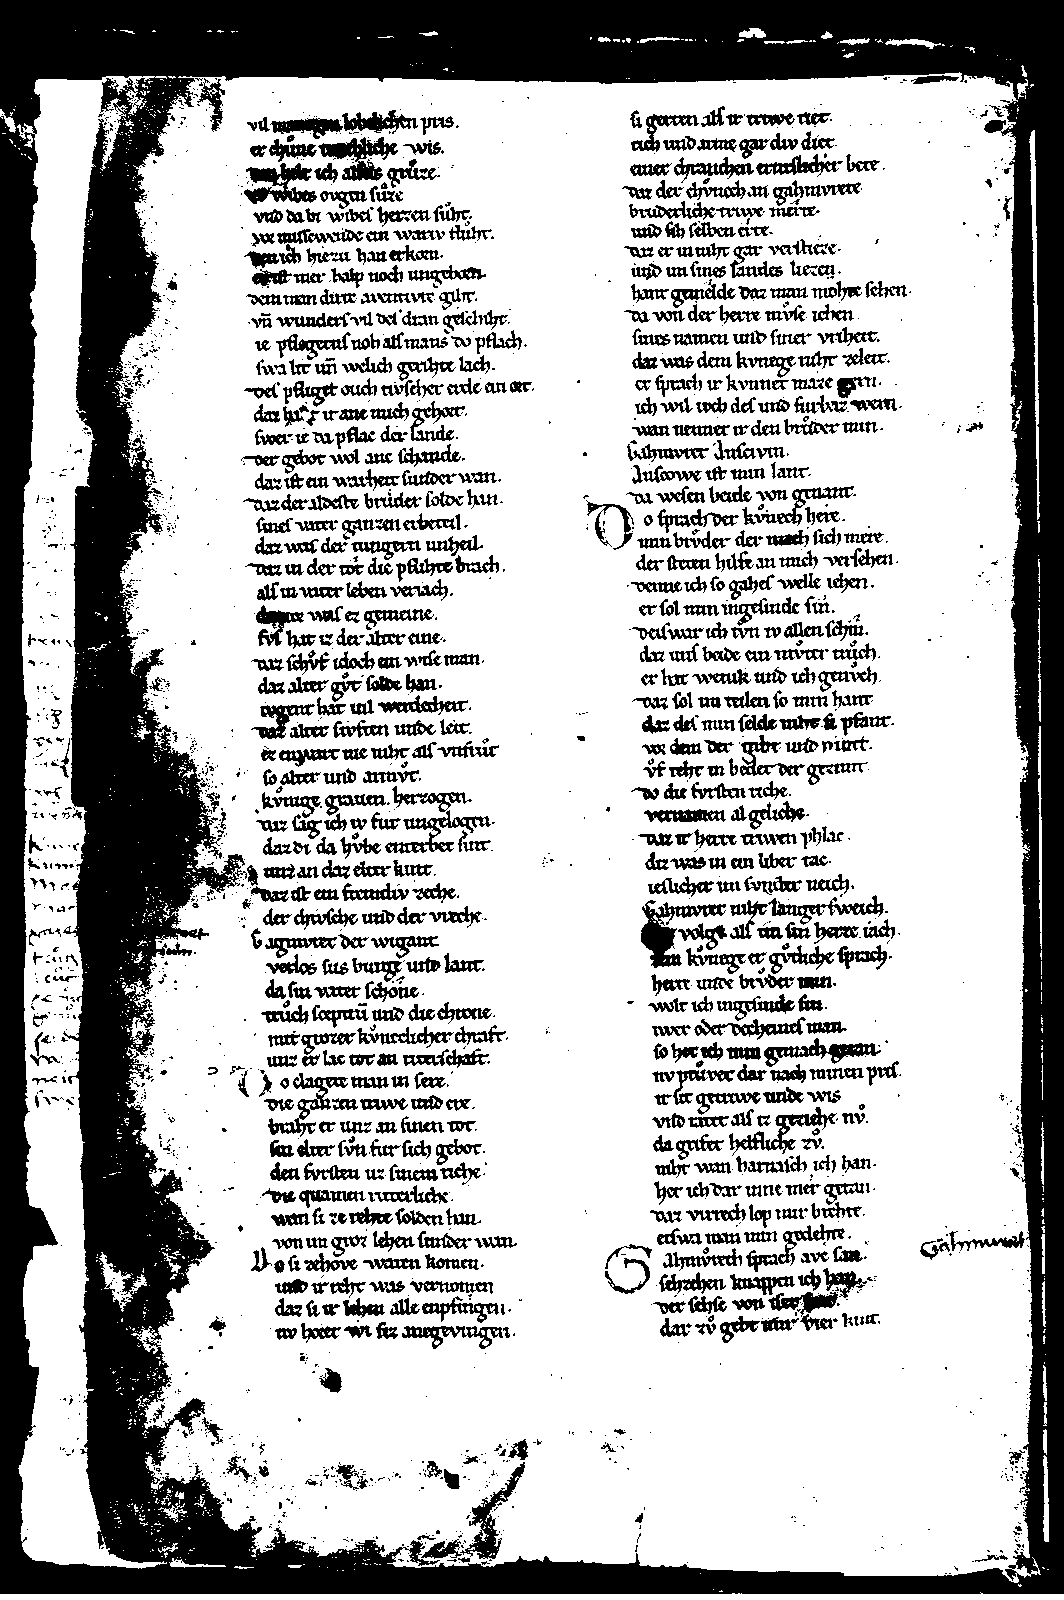 vil manegen lobelichen pris.
er chŭne trachliche wis.
den helt ich alsus grŭze.
er wibes ougen sŭze
vnd da bi wibes herzen sŭht.
vor missewende ein wariv flŭht.
den ich hiezu han erkorn.
er ist mer halp noch ungeborn.
dem man dirre aventivre giht.
vn̄ wunders vil des dran geschiht.
ie pflegents noh als mans do pflach.
swa lit un̄ welich gerihte lach.
des pfliget ouch tivscher erde ein ort.
daz habt ir ane mich gehort.
swer ie da pflac der lande.
der gebot wol ane schande.
daz ist ein warheit sunder wan.
daz der aldeste brŭder solde han.
sines vater ganzen erbeteil.
daz was der iungern unheil.
daz in der tot die pflihte brach.
als in vater leben veriach.
da vor was ez gemeine.
svs hat iz der alter eine.
daz schŭf idoch ein wise man.
daz alter gŭt solde han.
iugent hat vil werdicheit.
daz alter sivften unde leit.
ez enwart nie niht als vnfrŭt
so alter und armŭt.
kŭnige grauen herzogen.
daz sag ich iv fur ungelogen.
daz di da hŭbe enterbet sint.
unz an daz elter kint.
daz ist ein fremdiv zeche.
der chivsche und der vreche.
Gagmuret der wigant
verlos sus burge und lant.
da sin vater schone.
trŭch sceptrū und die chrone.
mit grozer kŭneclicher chraft.
unz er lac tot an riterschaft.
Do clagete man in sere.
die ganzen triwe und ere.
braht er unz an sinen tot.
sin elter sŭn fur sich gebot.
den fvrsten uz sinem riche.
die quamen ritterliche.
wan si ze rehte solden han.
von im groz lehen sunder wan.
Do si zehove waren komen.
und ir reht was vernomen
daz si ir lehen alle enpfingen.
nv horet wi sez anegevingen.
si gerten als ir triwe riet.
rich und arme gar div diet.
einer chranchen ernstlicher bete.
daz der chŭnech an gahmvrete
bruderliche triwe merte.
und sih selben erte.
daz er in niht gar verstieze.
und im sines landes liezen.
hant gemelde daz man mohte sehen.
da von der herre mŭse iehen
sines namen und siner vriheit.
daz was dem kvnege niht zeleit.
er sprach ir kvnnet maze gern.
ich wil iuch des und furbaz wern.
wan nennet ir den brŭder min.
Gahmvret Anscivin.
Anscowe ist min lant.
da wesen beide von genant.
Do sprach der kŭnech here.
min brŭder der mach sich mere.
der steten hilfe an mich versehen.
denne ich so gahes welle iehen.
er sol min ingesinde sin.
deiswar ich tŭn iv allen schin.
daz uns beide ein mŭter trŭch.
er hat wenik und ich genŭch.
daz sol im teilen so min hant
daz des min selde niht si pfant.
vor dem der gibt und nimt.
ŭf reht in beder der gezimt
do die fvrsten riche.
vernamen al geliche.
daz ir herre triwen phlac.
diz was in ein liber tac.
ieslicher im sunder neich.
Gahmvret niht langer sweich.
der volge als im sin herze iach.
zem kŭnege er gŭtliche sprach.
herre unde brŭder min.
wolt ich ingesinde sin.
iwer oder decheines man.
so het ich min gemach getan.
nv prŭvet dar nach minen pris.
ir sit getriwe unde wis
vnd ratet als iz geziehe nŭ.
da grifet helfliche zŭ.
niht wan harnasch ich han.
het ich dar inne mer getan.
daz virrech lop mir brehte.
etswa man min gedehte.
Gahmŭrech sprach ave san.
sehzehen knappen ich han.
der sehse von iser sint.
dar zŭ gebt mir vier kint.
Gahmuret